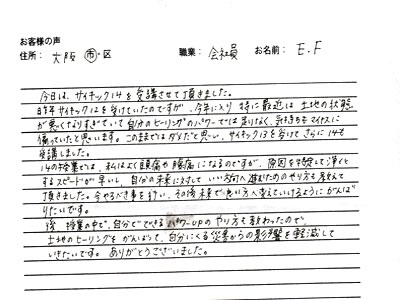 お客様の声
住所: 大阪 市・区 職業: 会社員 お名前: E.F
今日は、サイキック14を受講させて頂きました。
昨年サイキック12を受けていたのですが、今年に入り特に最近は土地の状態
が悪くなりすぎていて自分のヒーリングのパワーでは足りなく、気持ちもマイナスに
偏っていたと思います。このままではダメだと思い、サイキック13を受けてさらに14も
受講しました。
14の授業では、私はよく頭痛や腰痛になるのですが、原因を特定して浄化
するスピードが早いし、自分の未来に対していい方向へ進むためのやり方も教えて
頂きました。今やるべき事を行い、その後未来で良い方へ変えていけるようにがんば
りたいです。
後、授業の中で、自分でできるパワーupのやり方も教わったので、
土地のヒーリングをがんばって、自分にくる災害からの影響を軽減して
いきたいです。ありがとうございました。